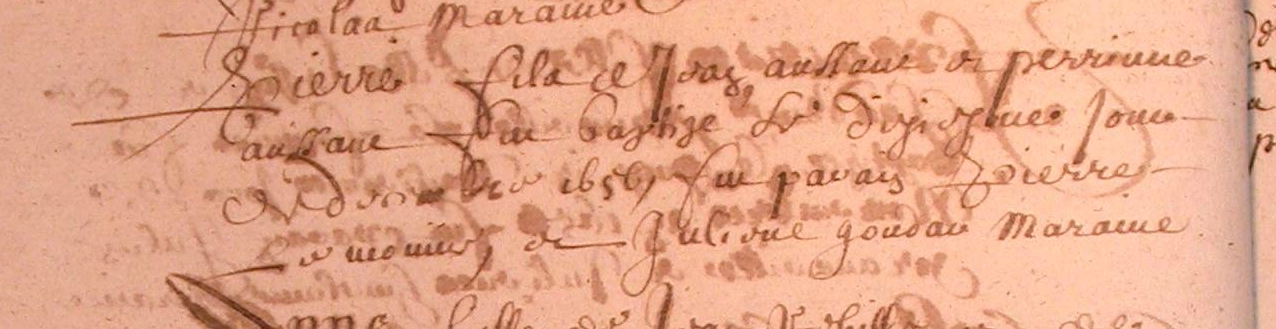 Nicolas Maraine
Pierre fils de Jean aussant et perrinne
aussant fut baptize le diziesme jour
de decembre 1656 fut parain Pierre
Le monier et Juliene goudar Maraine
Anne fille de Jean